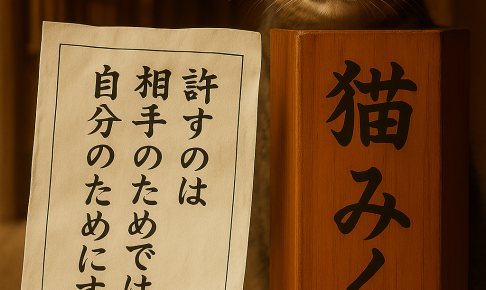 許すのは
相手のためでは
自分のためにす
猫みく